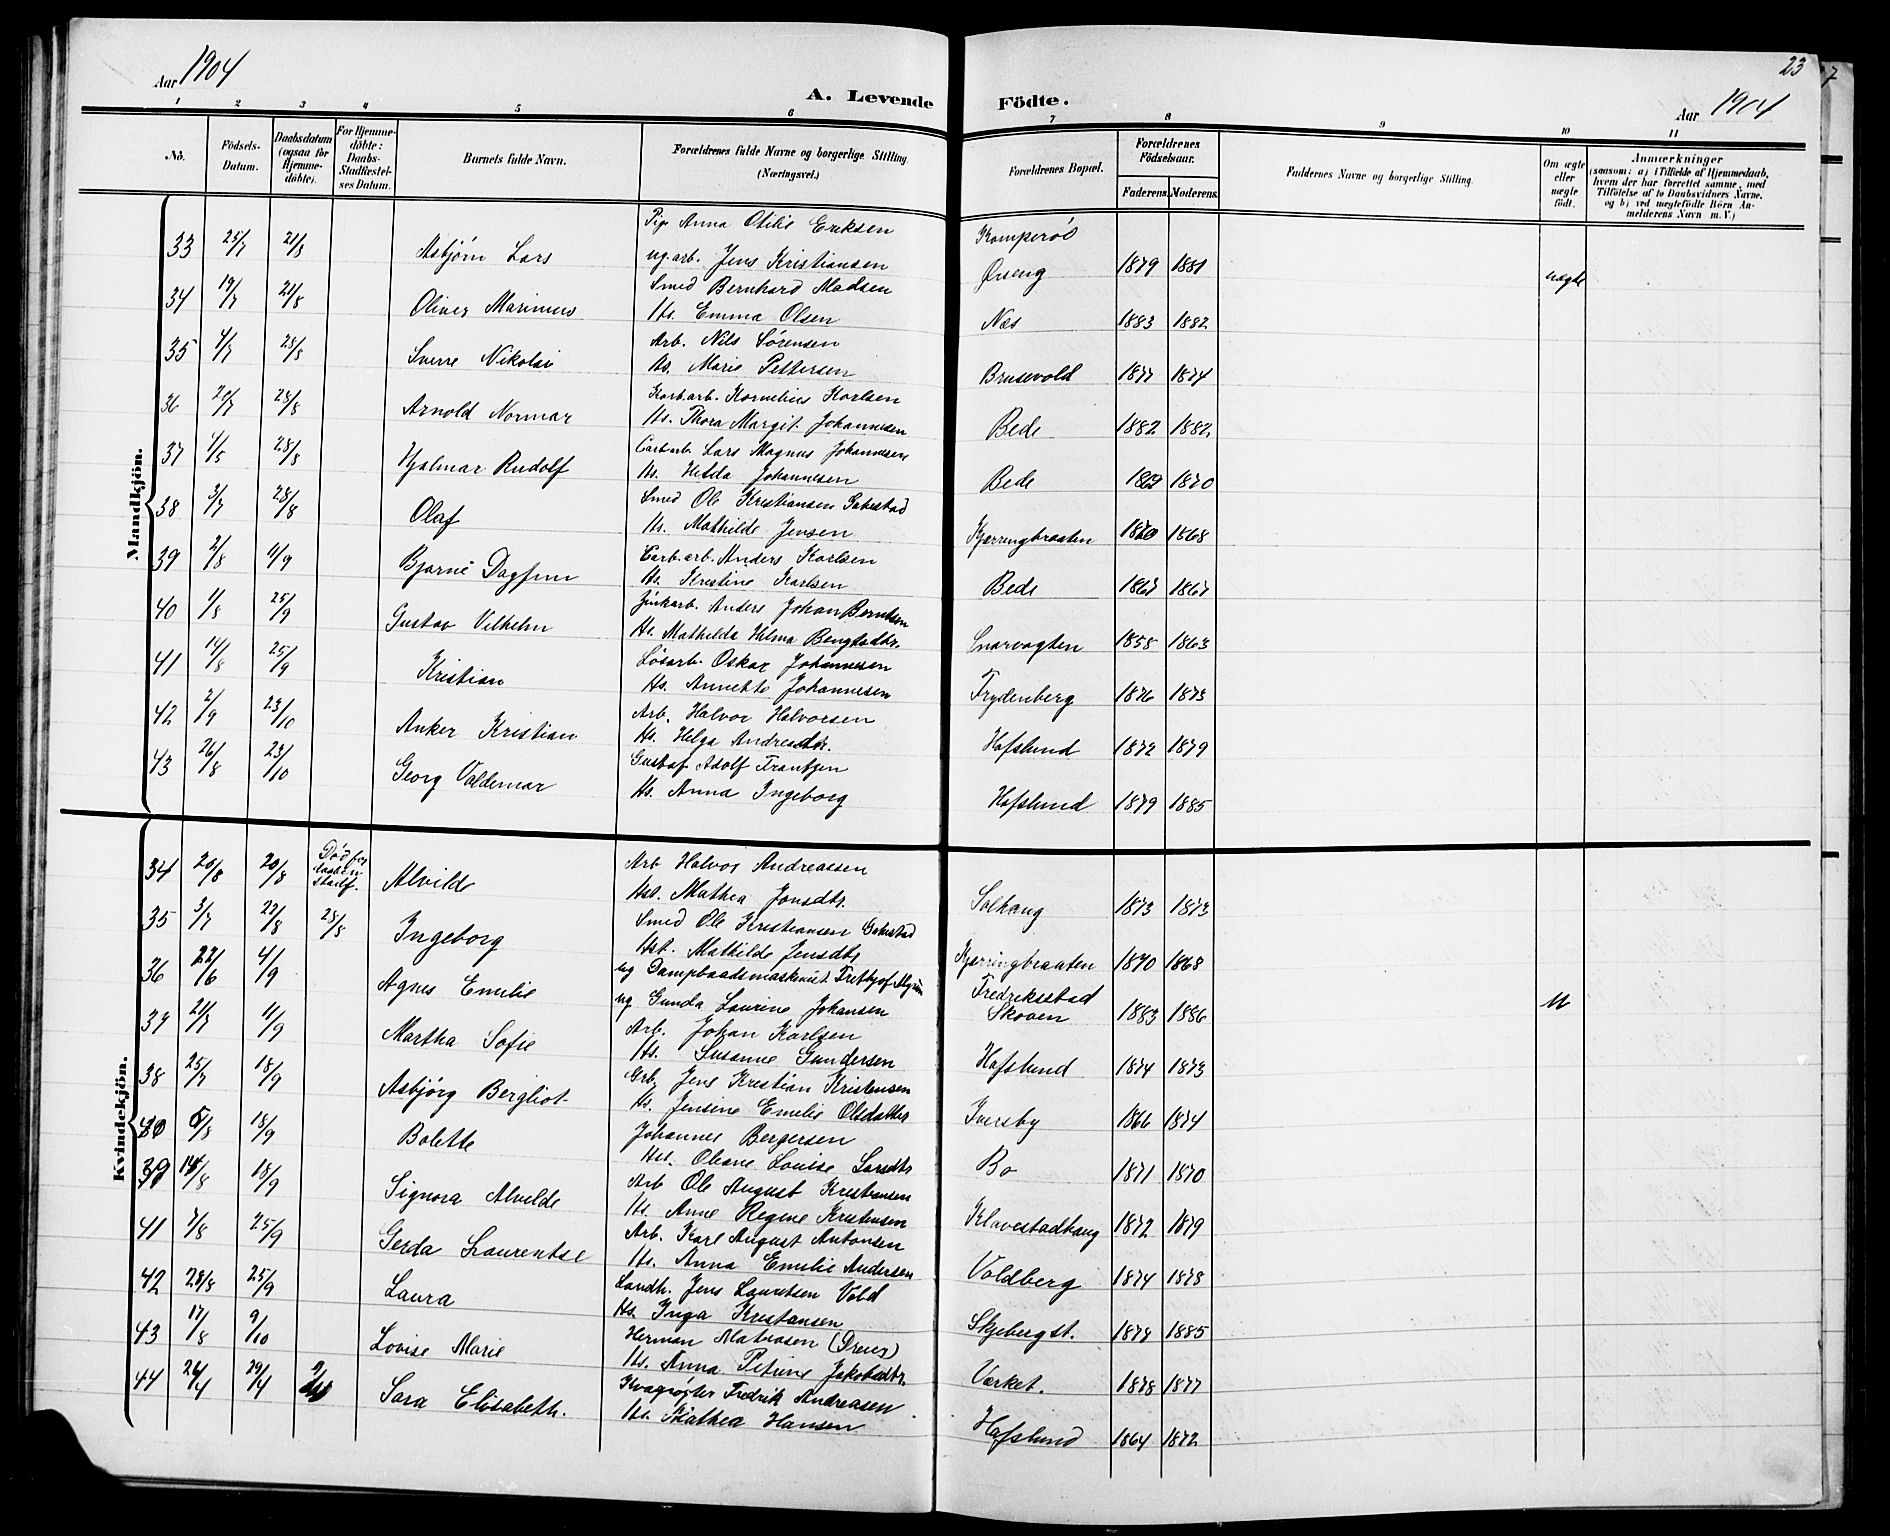 Aar 1904
A. Levende Födte.
Aar 1904
23
1 2 3 4 5 6 7 8 9 10 11
No.
Födsels-Datum.
Daabsdatum (ogsaa for Hjemmedöbte).
For Hjemmedöbte: Daabs-Stadfæstelses Datum.
Barnets fulde Navn.
Forældrenes fulde Navne og borgerlige Stilling. (Næringsvei.)
Forældrenes Bopæl.
Forældrenes Födselsaar.
Faderens. Moderens.
Faddernes Navne og borgerlige Stilling.
Om ægte eller uægte födt.
Anmærkninger
(saasom: a) i Tilfælde af Hjemmedaab,
hvem der har forrettet samme, med
Tilföielse af to Daabsvidners Navne,
og b) ved uægtefödte Börn An-
melderens Navn m. V.)
Mandkjön.
Pig. Anna Otilie Eriksen Kamperöd
33 25/7 21/8 Asbjørn Lars ug. arb. Jens Kristiansen Øreeng 1879 1881 uægte
34 19/7 21/8 Oliver Marinius Smed Bernhard Madsen
Hs. Emma Olsen Næs 1883 1882
35 4/7 28/8 Sverre Nikolai Arb. Nils Sørensen
Hs. Marie Pettersen Brusevold 1877 1874
36 20/7 28/8 Arnold Normar Karb.arb. Kornelius Karlsen
Hs. Thora Margit Johannesen Bede 1882 1882
37 4/5 28/8 Hjalmar Rudolf Carb.arb. Lars Magnus Johannesen
Hs. Hilda Johannesen Bede 1869 1870
38 3/7 28/8 Olaf Smed Ole Kristiansen Gakestad
Hs. Mathilde Jensen Kjærringbraaten 1870 1868
39 2/8 11/9 Bjarne Dagfinn Carb.arb. Anders Karlsen
Hs. Kristine Karlsen Bede 1867 1867
40 1/8 25/9 Gustav Vilhelm Zinkarb. Anders Johan Berntsen
Hs. Mathilda Helma Bengtsdtr. Snarvagten 1858 1863
41 14/8 25/9 Kristian Løsarb. Oskar Johannesen
Hs. Annette Johannesen Frydenberg 1876 1873
42 2/9 23/10 Anker Kristian Arb. Halvor Halvorsen
Hs. Helga Andreasdtr. Hafslund 1872 1879
43 26/8 23/10 Georg Valdemar Gustaf Adolf Frantzen
Hs. Anna Ingeborg Hafslund 1879 1885
Kvindekjön.
34 20/8 20/8 Alvild Arb Halvor Andreassen
Hst. Mathea Jonsdtr. Solhaug 1873 1873
35 3/7 27/8 28/8 Ingeborg Smed Ole Kristiansen Gakestad
Hst. Mathilde Jensdtr Kjærringbraaten 1870 1868
36 22/6 4/9 Agnes Emilie ug Dampbaadsmaskinist Fritjof Fredriksstad
ug Gunda Laurine Johansen Skoven 1883 1886 U
37 21/7 11/9 Martha Sofie Arb. Johan Karlsen
Hs. Susanne Gundersen Hafslund 1874 1873
38 25/7 18/9 Asbjörg Bergliot Grb. Jens Kristian Kristensen
Hs. Jensine Emilie Olsdatter Iversby 1866 1874
40 5/8 18/9 Bolette Johannes Bergersen
Hst. Oleane Louise Larsdtr Bø 1871 1870
39 14/8 18/9 Signora Alvilde Arb Ole August Kristiansen
Hs. Anne Regine Kristensen Klavestadhaug 1872 1879
41 7/8 25/9 Gerda Laurentse Arb. Karl August Antonsen
Hs. Anna Emilie Andersen Voldberg 1874 1878
42 28/8 25/9 Laura Landh. Jens Lauritsen Vold
Hs. Inga Kristansen Skjebergst. 1878 1885
43 17/8 9/10 Lovise Marie Herman Mathiasen (Dreier)
Hs. Anna Petrine Jakobsdtr. Værket. 1878 1877
44 26/4 29/4 Sara Elisabeth. Kvægrøgter Fredrik Andreasen
Hs. Mathea Hansen Hafslund 1864 1872